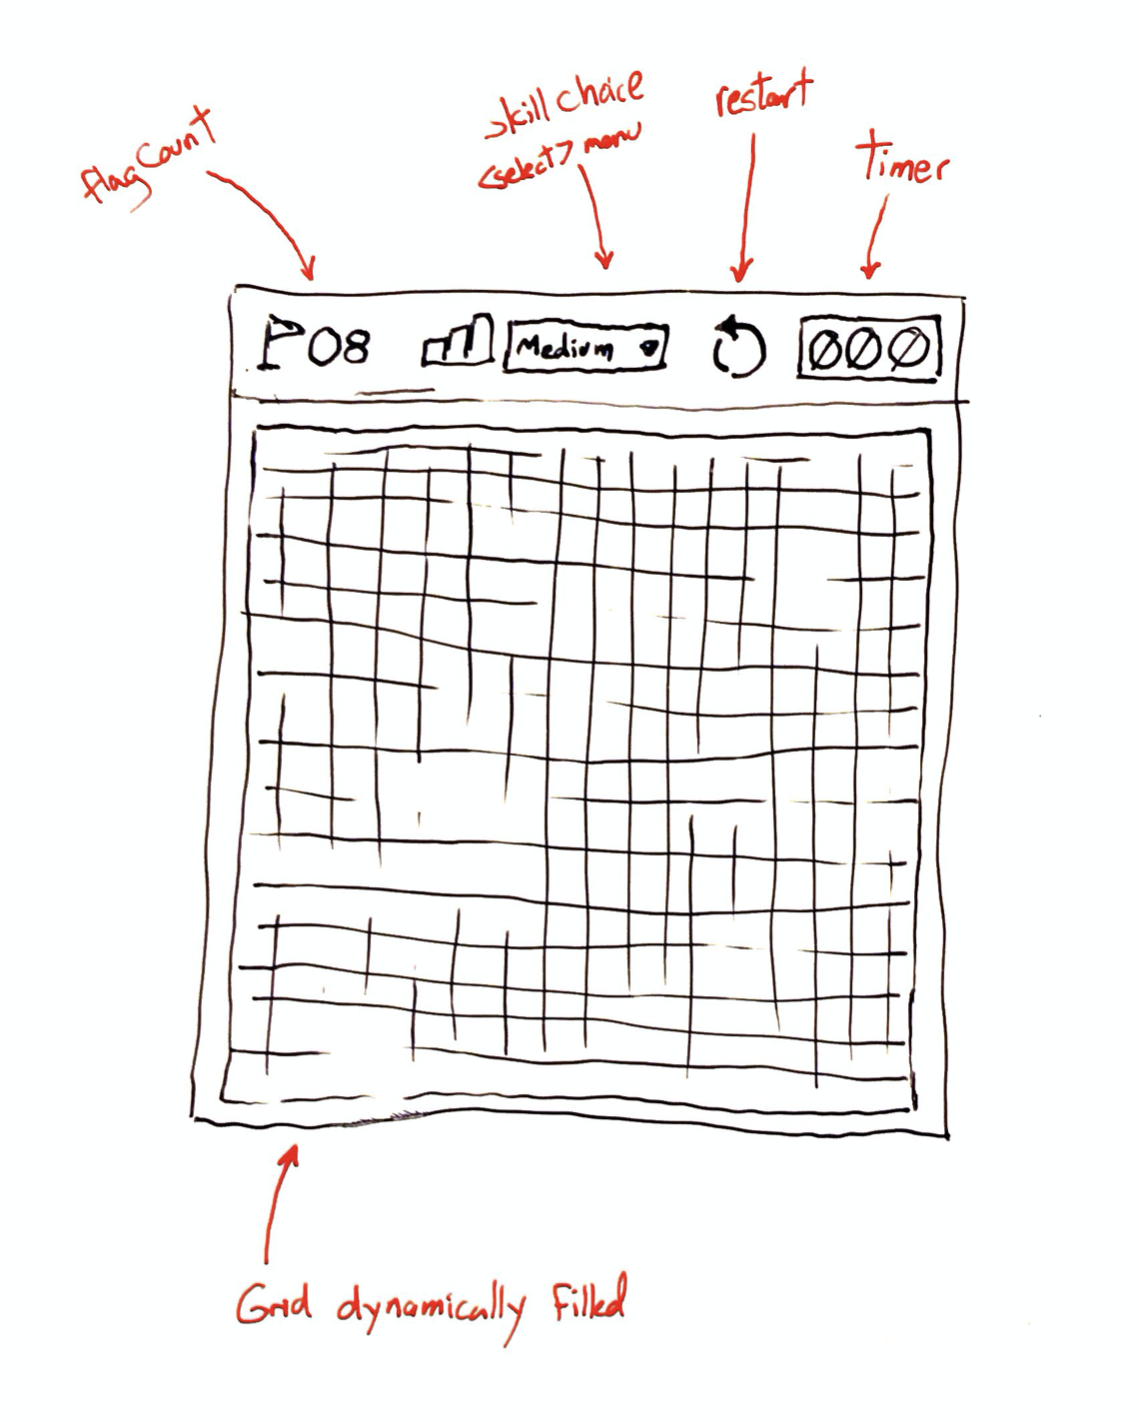 flag count
skill choice
<select> menu
restart
timer
08
Medium
000
Grid dynamically filled